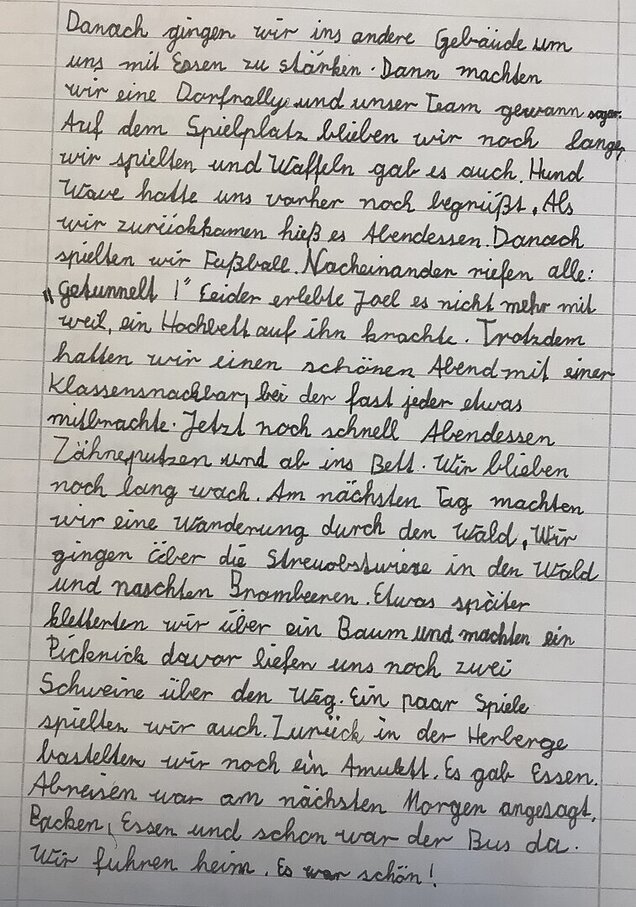 Danach gingen wir ins andere Gebäude um
uns mit Essen zu stärken. Dann machten
wir eine Dorfrallye und unser Team gewann sogar.
Auf dem Spielplatz blieben wir noch lange,
wir spielten und Waffeln gab es auch. Hund
Wave hatte uns vorher noch begrüßt. Als
wir zurückkamen hieß es Abendessen. Danach
spielten wir Fußball. Nacheinander riefen alle:
„Getunnelt!" Leider erlebte Joel es nicht mehr mit
weil, ein Hochbett auf ihn krachte. Trotzdem
hatten wir einen schönen Abend mit einer
Klassensnackbar, bei der fast jeder etwas
mitbrachte. Jetzt noch schnell Abendessen
Zähneputzen und ab ins Bett. Wir blieben
noch lang wach. Am nächsten Tag machten
wir eine Wanderung durch den Wald. Wir
gingen über die Streuobstwiese in den Wald
und naschten Brombeeren. Etwas später
kletterten wir über ein Baum und machten ein
Picknick davor liefen uns noch zwei
Schweine über den Weg. Ein paar Spiele
spielten wir auch. Zurück in der Herberge
bastelten wir noch ein Amulett. Es gab Essen.
Abreisen war am nächsten Morgen angesagt.
Packen, Essen und schon war der Bus da.
Wir fuhren heim. Es war schön!